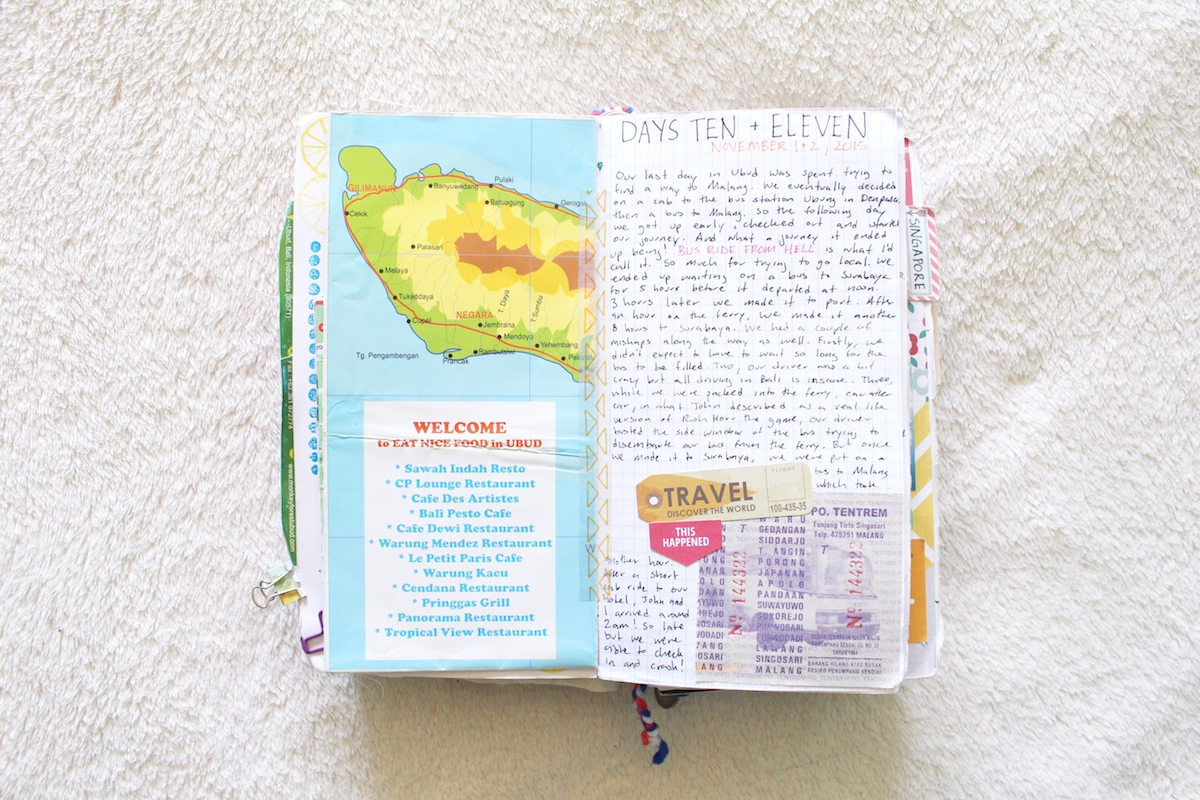 GILIMANUK
Banyuwedang
Pulaki
Batuagung
Gerogak
Cekik
Palasari
Melaya
Tukaddaya
Copel
NEGARA
T. Daya
T. Sumbu
Jembrana
Mendoyo
Yehembang
Rambutsiwi
Tg. Pengambengan
Prancak
WELCOME
to EAT NICE FOOD in UBUD
* Sawah Indah Resto
* CP Lounge Restaurant
* Cafe Des Artistes
* Bali Pesto Cafe
* Cafe Dewi Restaurant
* Warung Mendez Restaurant
* Le Petit Paris Cafe
* Warung Kacu
* Cendana Restaurant
* Pringgas Grill
* Panorama Restaurant
* Tropical View Restaurant
DAYS TEN + ELEVEN
NOVEMBER 1+2, 2015
Our last day in Ubud was spent trying to
find a way to Malang. We eventually decided
on a cab to the bus station Ubung in Denpasar
then a bus to Malang. So the following day
we got up early, checked out and started
our journey. And what a journey it ended
up being! BUS RIDE FROM HELL is what I'd
call it. So much for trying to go local. We
ended up waiting on a bus to Surabaya
for 5 hours before it departed at noon.
3 hours later we made it to port. After
an hour on the ferry, we made it another
8 hours to Surabaya. We had a couple of
mishaps along the way as well. Firstly, we
didn't expect to have to wait so long for the
bus to be filled. Two, our driver was a bit
crazy but all driving in Bali is insane. Three,
while we were packed into the ferry, car after
car, in what John described as a real life
version of Rush Hour the game, our driver
busted the side window of the bus trying to
disembark our bus from the ferry. But once
we made it to Surabaya, we were put on a
bus to Malang
which took
TRAVEL
DISCOVER THE WORLD
FLIGHT
100-435-35
THIS
HAPPENED
another hour.
After a short
cab ride to our
hotel, John and
I arrived around
2am! So late
but we were
able to check
in and crash!
PO. TENTREM
Tunjung Tirto Singosari
Telp. 475791 MALANG
WARU
GEDANGAN
SIDOARJO
T. ANGIN
PORONG
JAPANAN
APOLO
PANDAAN
SUWAYUWO
SUKOREJO
PURWOSARI
PURWODADI
LAWANG
SINGOSARI
MALANG
T
T
No 144322
No 144322
BARANG HILANG ATAU RUSAK
RESIKO PENUMPANG SENDIRI
SINGAPORE
Ubud, Bali, Indonesia (80571)
www.monkeyforestubud.com